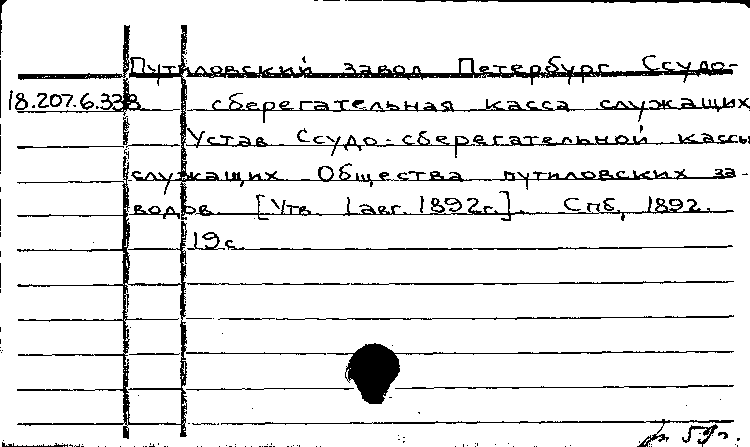 Путиловский завод Петербург Ссудо-
18.207.6.338 сберегательная касса служащих
Устав Ссудо-сберегательной кассы
служащих Общества путиловских за-
водов. [Утв. 1 авг. 1892г.]. Спб, 1892.
19с.